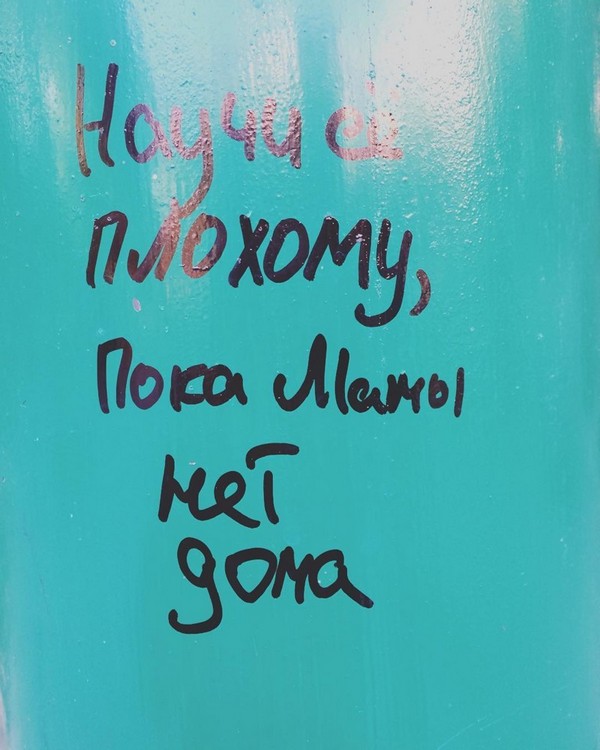 Научи её
плохому,
Пока Мамы
нет
дома